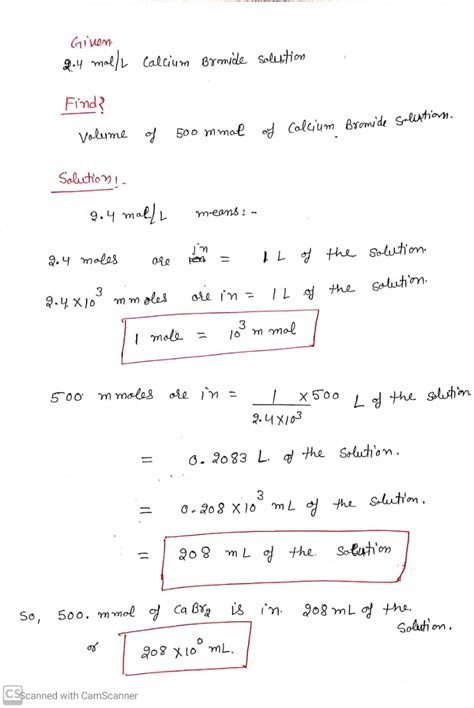 Given
2.4 mol/L Calcium Bromide Solution
Find?
Volume of 500 mmol of Calcium Bromide Solution.
Solution:-
2.4 mol/L means:-
2.4 moles are in = 1 L of the solution.
2.4 × 10³ mmoles are in = 1 L of the solution.
1 mole = 10³ m mol
500 mmoles are in = 1 / 2.4×10³ × 500 L of the solution
= 0.2083 L. of the solution.
= 0.208 × 10³ mL of the solution.
= 208 mL of the solution
So, 500. mmol of CaBr₂ is in 208 mL of the solution.
or 208 × 10⁰ mL.
CS Scanned with CamScanner